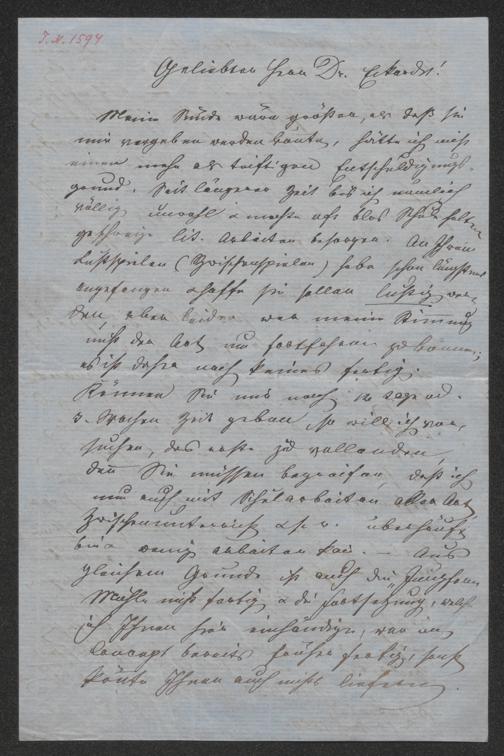 J.N. 1594
Geliebter Herr Dr. Eckardt!
Meine Sünde wäre größer, als daß sie
mir vergeben werden könte, hätte ich nicht
einen mehr als triftigen Entschuldigungs-
grund. Seit längerer Zeit bin ich nämlich
völlig unwohl & mußte oft blos Schule halten
lit. Arbeiten besorgen. An Ihren
Lustspielen (Zwischenspielen) habe schon längstens
angefangen & hoffe sie sollen lustig wer-
den aber leider war meine Stimmung
nicht der Art um fortfahren zu können;
es ist daher noch keines fertig.
Können Sie mir noch 14 Tage od.
3. Wochen Zeit geben, so will ich ver-
suchen, das erste zu vollenden,
den Sie müssen begreifen, daß ich
nun auch mit Schularbeiten aller Art
Zwischenunterricht u.s.w. überhäuft
bin & wenig arbeiten kan. — Aus
gleichem Grunde ist auch die Jungfern
Mühle nicht fertig & die Fortsetzung, welche
ich Ihnen hier einhändige, war im
Concept bereits früher fertig, sonst
könte Ihnen auch nichts liefern.